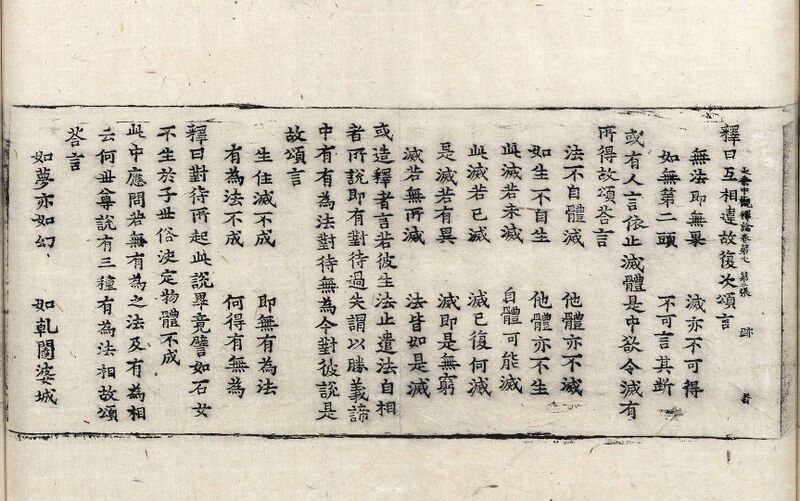 釋曰互相違故復次頌言
大乘中觀釋論卷第七 第三張 跡
無法即無果 滅亦不可得
如無第二頭 不可言其断
或有人言依止滅體是中欲令滅有
所得故頌荅言
法不自體滅 他體亦不滅
如生不自生 他體亦不生
此滅若未滅 自體可能滅
此滅若已滅 滅已復何滅
是滅若有異 滅即是無窮
滅若無所滅 法皆如是滅
或造釋者言若彼生法止遣法自相
者所說即有對待過失謂以勝義諦
中有有為法對待無為令對彼說是
故頌言
生住滅不成 即無有為法
有為法不成 何得有無為
釋曰對待所起此說畢竟譬如石女
不生於子世俗決定物體不成
此中應問若無有為之法及有為相
云何世尊說有三種有為法相故頌
荅言
如夢亦如幻 如乹闥婆城